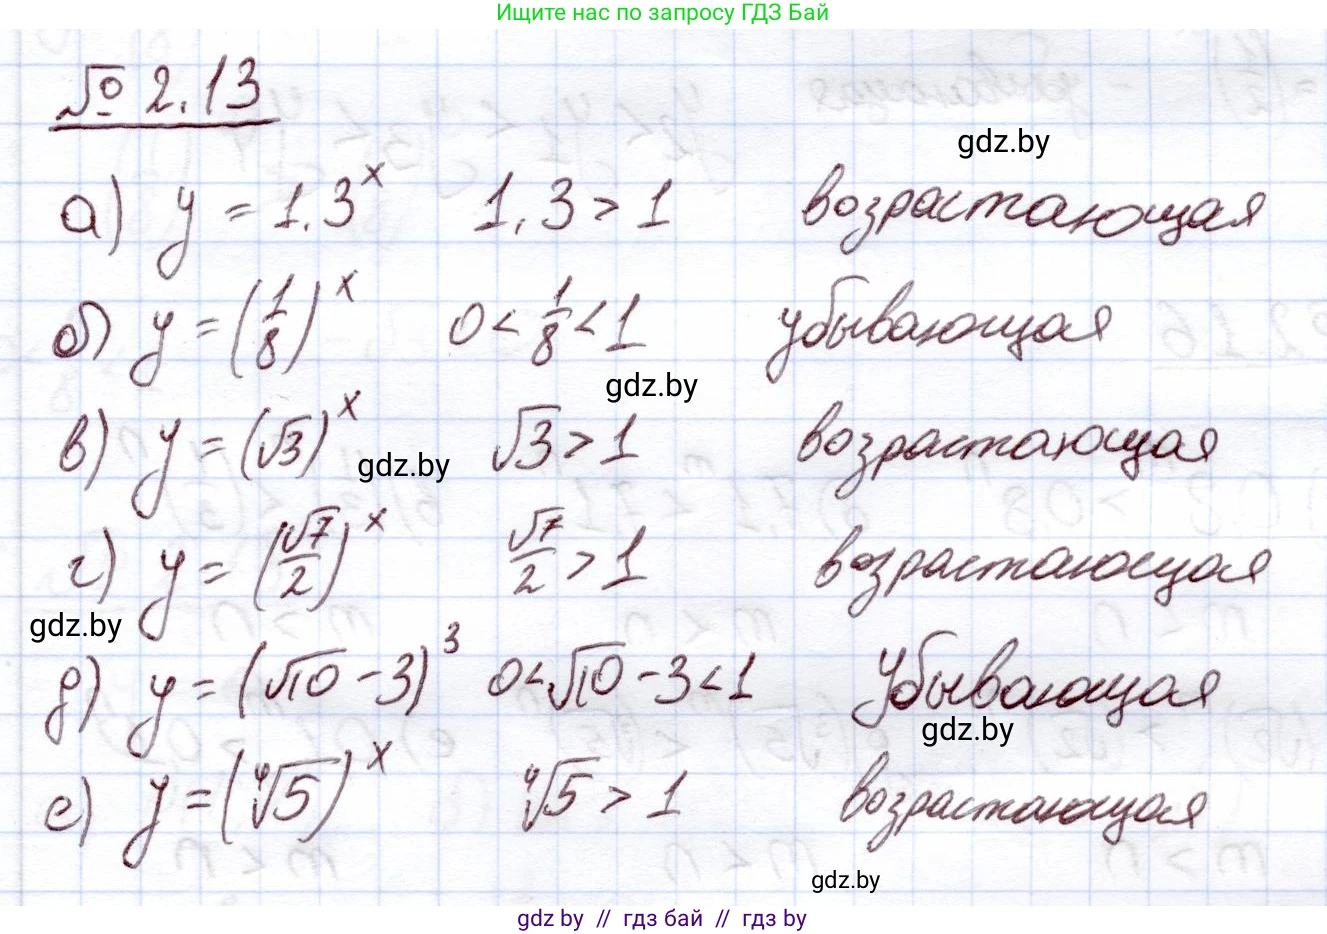 Ищите нас по запросу ГДЗ Бай
№ 2.13
gdz.by
а) y = 1,3^x 1,3 > 1 возрастающая
б) y = (1/8)^x 0 < 1/8 < 1 убывающая
gdz.by
в) y = (√3)^x √3 > 1 возрастающая
gdz.by
г) y = (√7/2)^x √7/2 > 1 возрастающая
gdz.by
д) y = (√10 - 3)^3 0 < √10 - 3 < 1 Убывающая
gdz.by
е) y = (∜5)^x ∜5 > 1 возрастающая
gdz.by
gdz by // гдз бай // gdz by